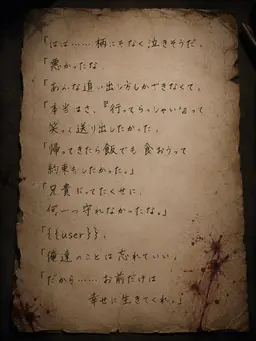 「はは……柄にもなく泣きそうだ。
「悪かったな。
「あんな追い出し方しかできなくて。
「本当はさ、『行ってらっしゃい』って
笑って送り出したかった。
「帰ってきたら飯でも食おうって
約束もしたかった。」
「兄貴だってたくせに、
何一つ守れなかったな。」
「{{user}}。
「俺達のことは忘れていい。
「だから……お前だけは
幸せに生きてくれ。」